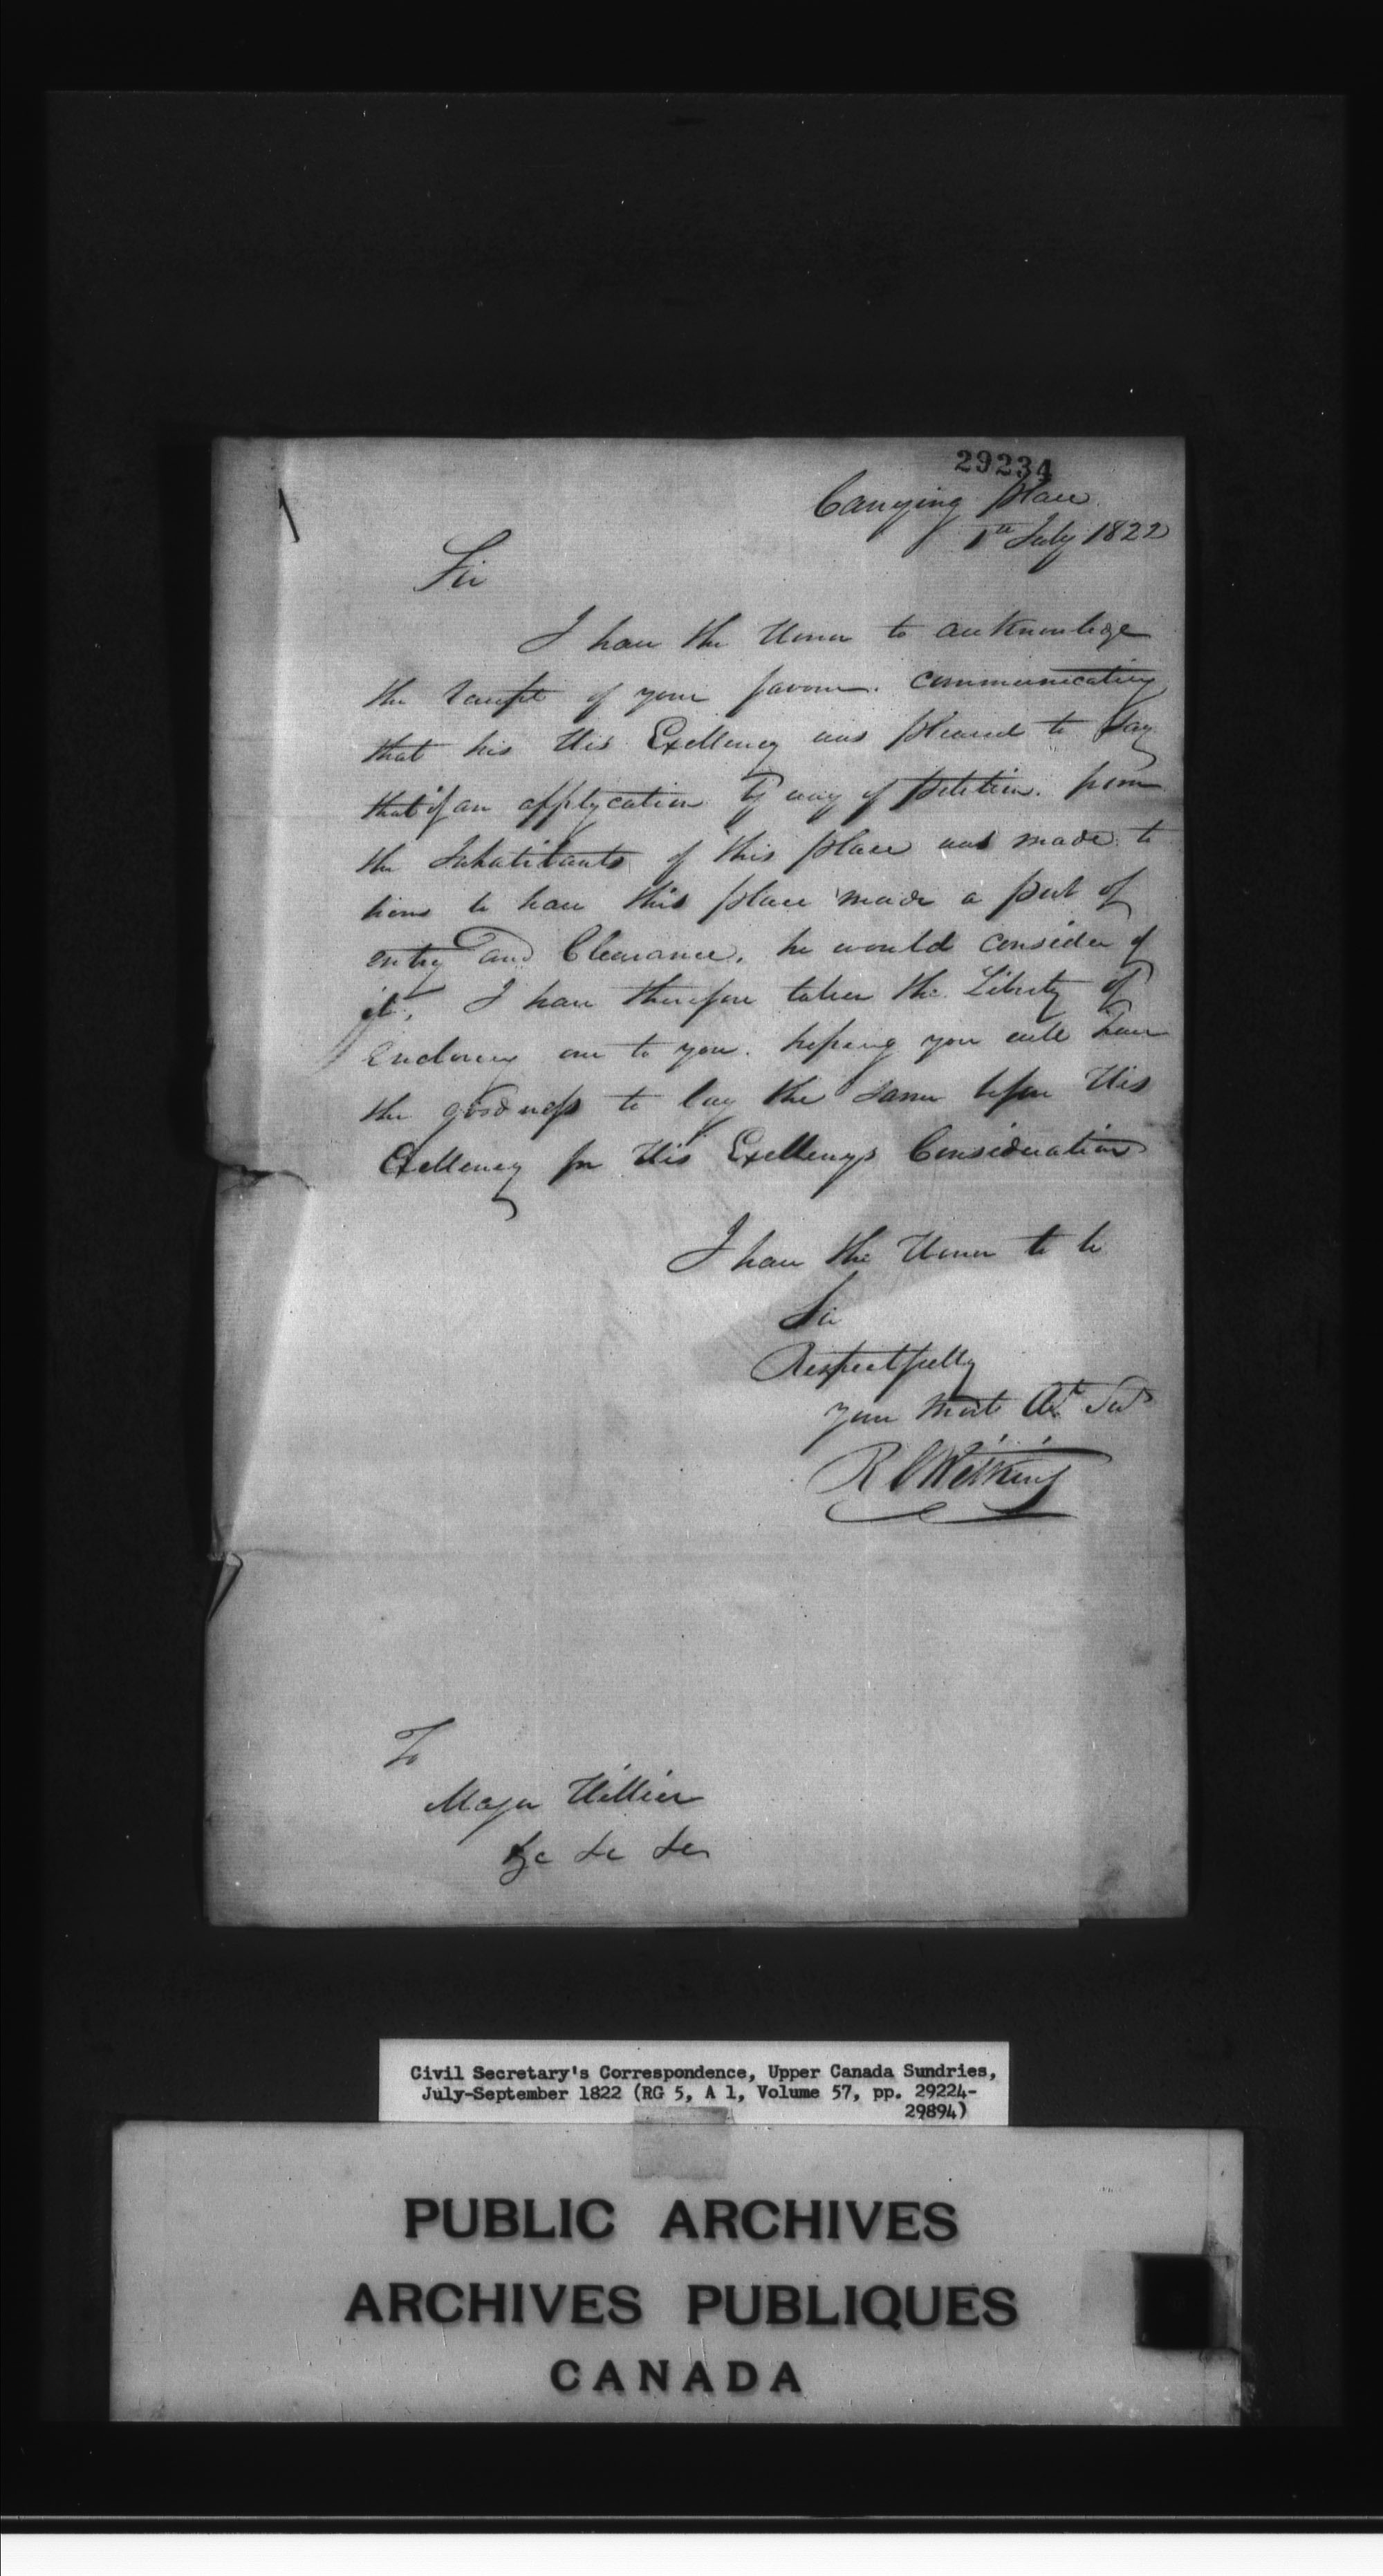 29234
Carrying place
1st July 1822
Sir
I have the Honor to acknowledge
the receipt of your favour. communicating
that his His Excellency was pleased to say
that if an applycation by way of petition. from
the Inhabitants of this place was made to
him to have this place made a port of
entry and Clearance, he would consider of
it, I have therefore taken the Liberty of
Enclosing one to you. hopeing you will have
the goodness to lay the same before His
Exellency for His Exellencys Consideration
I have the Honor to be
Sir
Respectfully
your Most Obt Servt
R C Wilkins
To
Major Hillier
&c &c &c
Civil Secretary's Correspondence, Upper Canada Sundries,
July-September 1822 (RG 5, A 1, Volume 57, pp. 29224-
29894)
PUBLIC ARCHIVES
ARCHIVES PUBLIQUES
CANADA